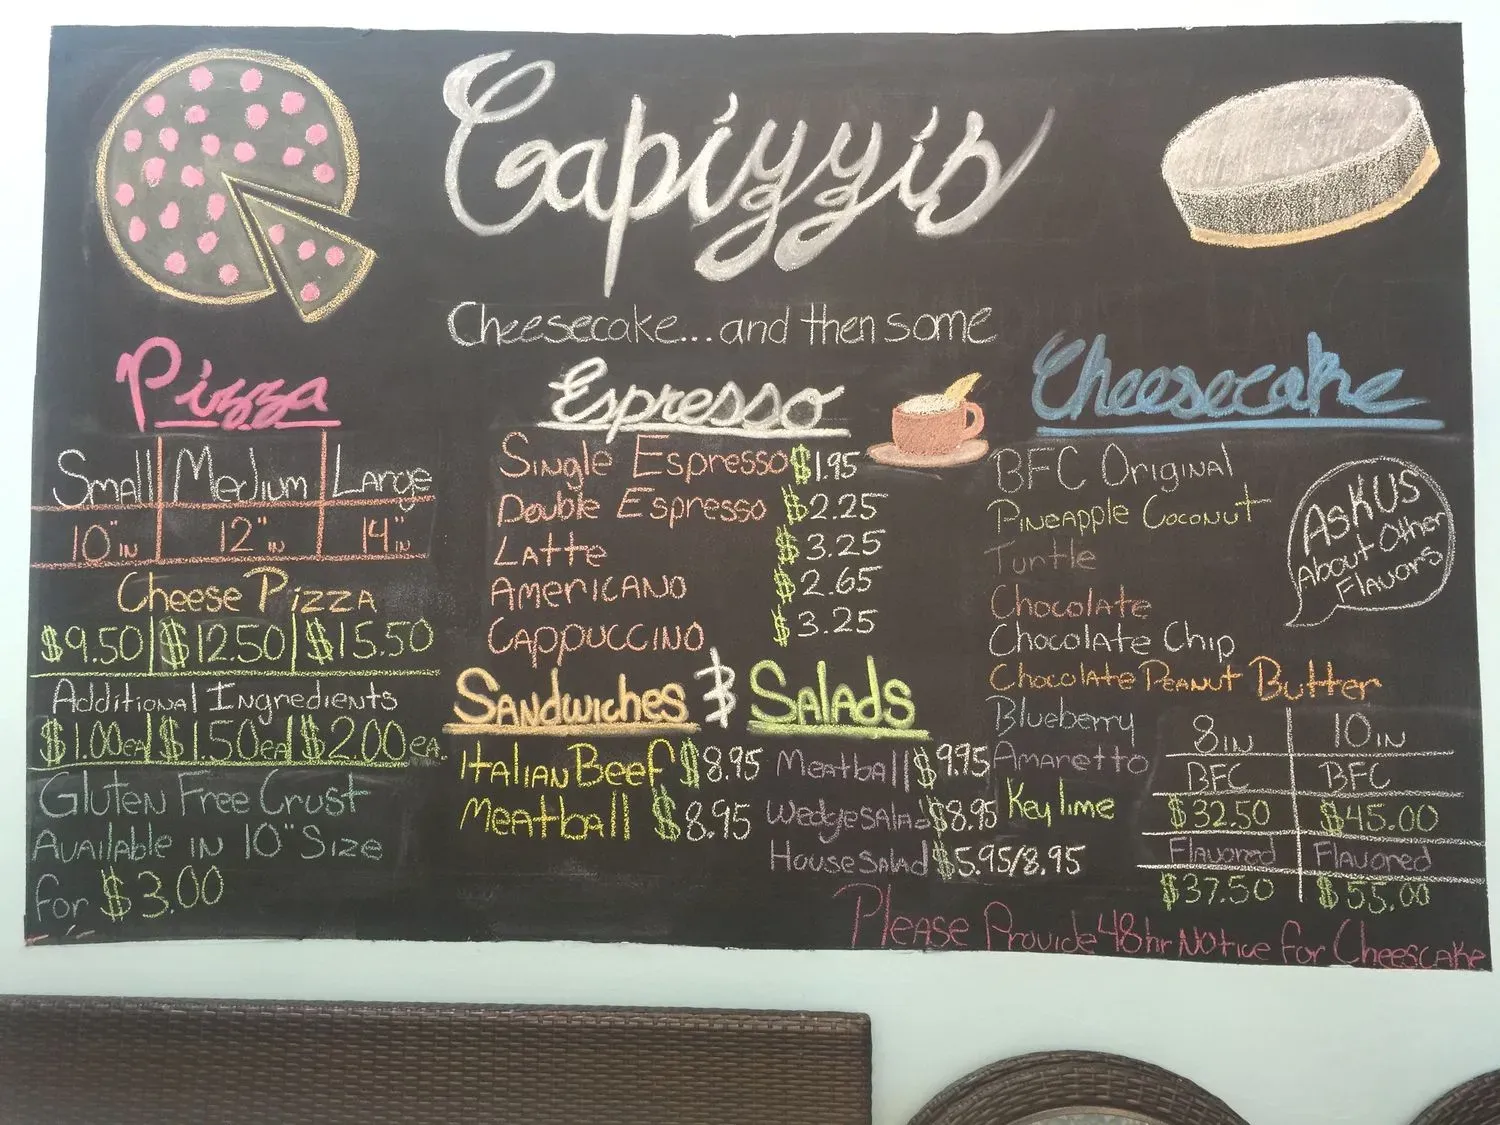 Capizzi's
Cheesecake...and then some
Pizza
Small Medium Large
10"in 12"in 14"in
Cheese Pizza
$9.50 $12.50 $15.50
Additional Ingredients
$1.00ea $1.50ea $2.00ea.
Gluten Free Crust
Available in 10" Size
for $3.00
Espresso
Single Espresso $1.95
Double Espresso $2.25
Latte $3.25
Americano $2.65
Cappuccino $3.25
Sandwiches & Salads
Italian Beef $8.95
Meatball $8.95
Meatball $9.95
Wedge Salad $8.95
House Salad $5.95/8.95
Cheesecake
BFC Original
Pineapple Coconut
Turtle
Chocolate
Chocolate Chip
Chocolate Peanut Butter
Blueberry
Amaretto
Key lime
Ask US
About Other
Flavors
8in 10in
BFC BFC
$32.50 $45.00
Flavored Flavored
$37.50 $55.00
Please Provide 48hr Notice for Cheescake